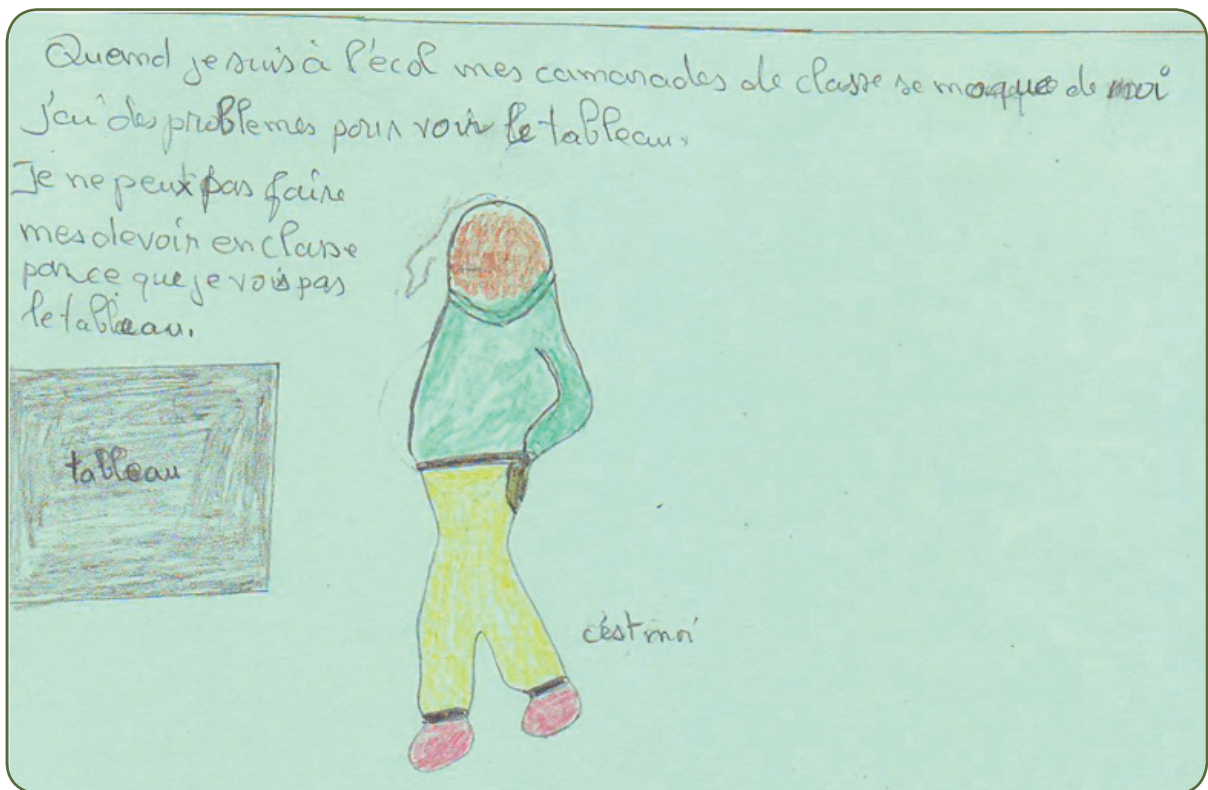 Quand je suis à l'écol mes camarades de classe se moque de moi
J'ai des problemes pour voir le tableau.
Je ne peux pas faire
mes devoir en classe
parce que je vois pas
le tableau.
tableau
c'est moi